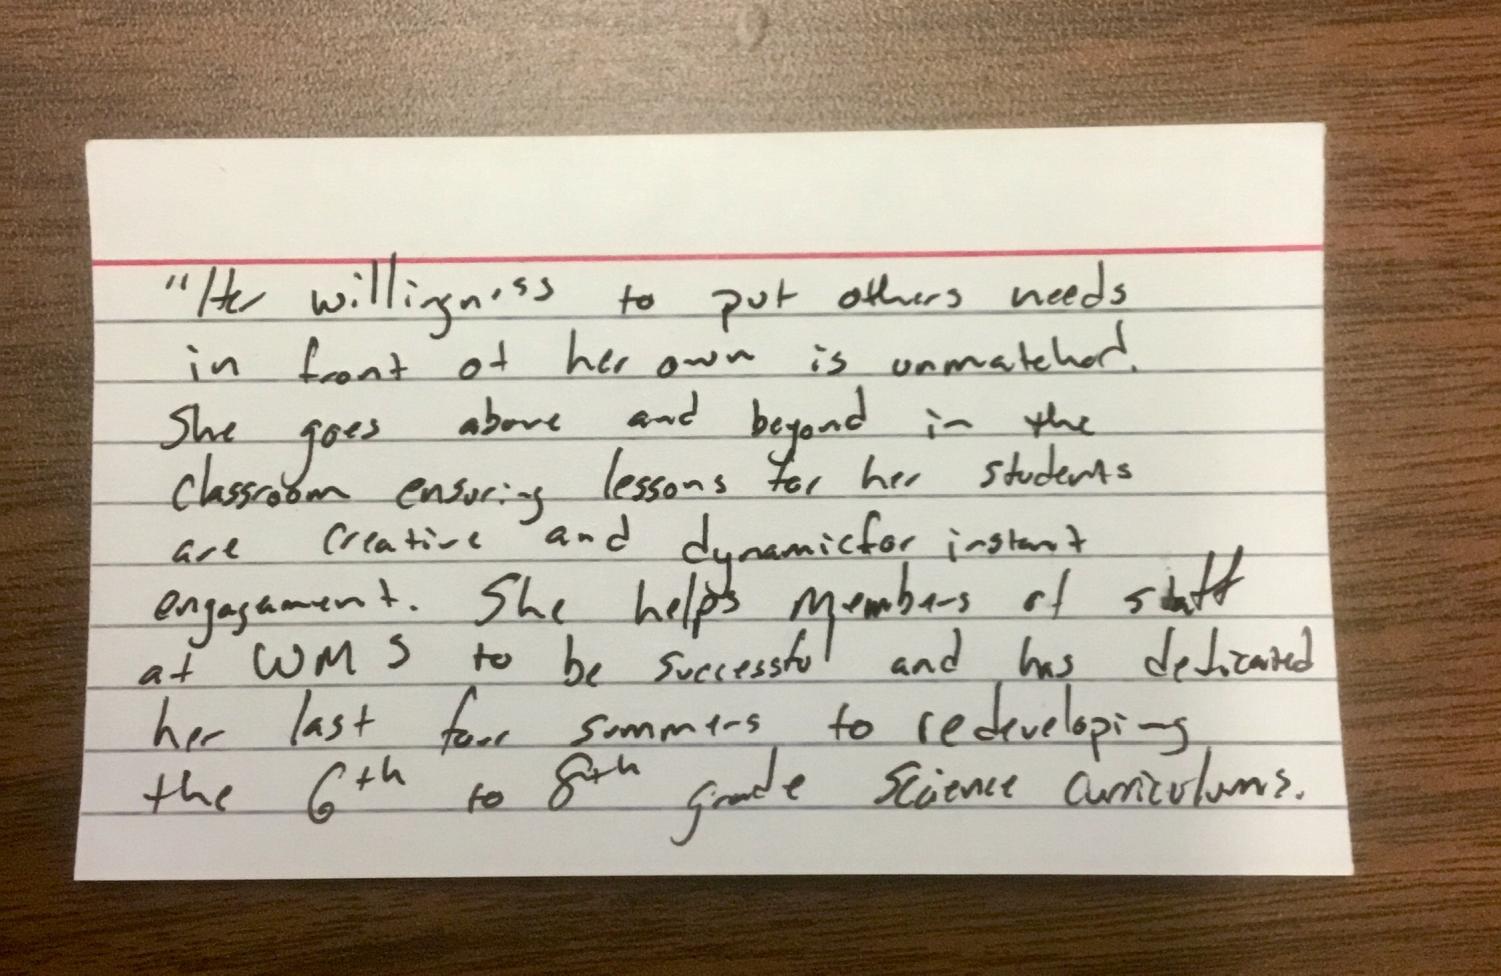 "Her willingness to put others needs
in front of her own is unmatched.
She goes above and beyond in the
classroom ensuring lessons for her students
are creative and dynamic for instant
engagement. She helps members of staff
at WMS to be successful and has dedicated
her last four summers to redeveloping
the 6th to 8th grade Science curriculums.